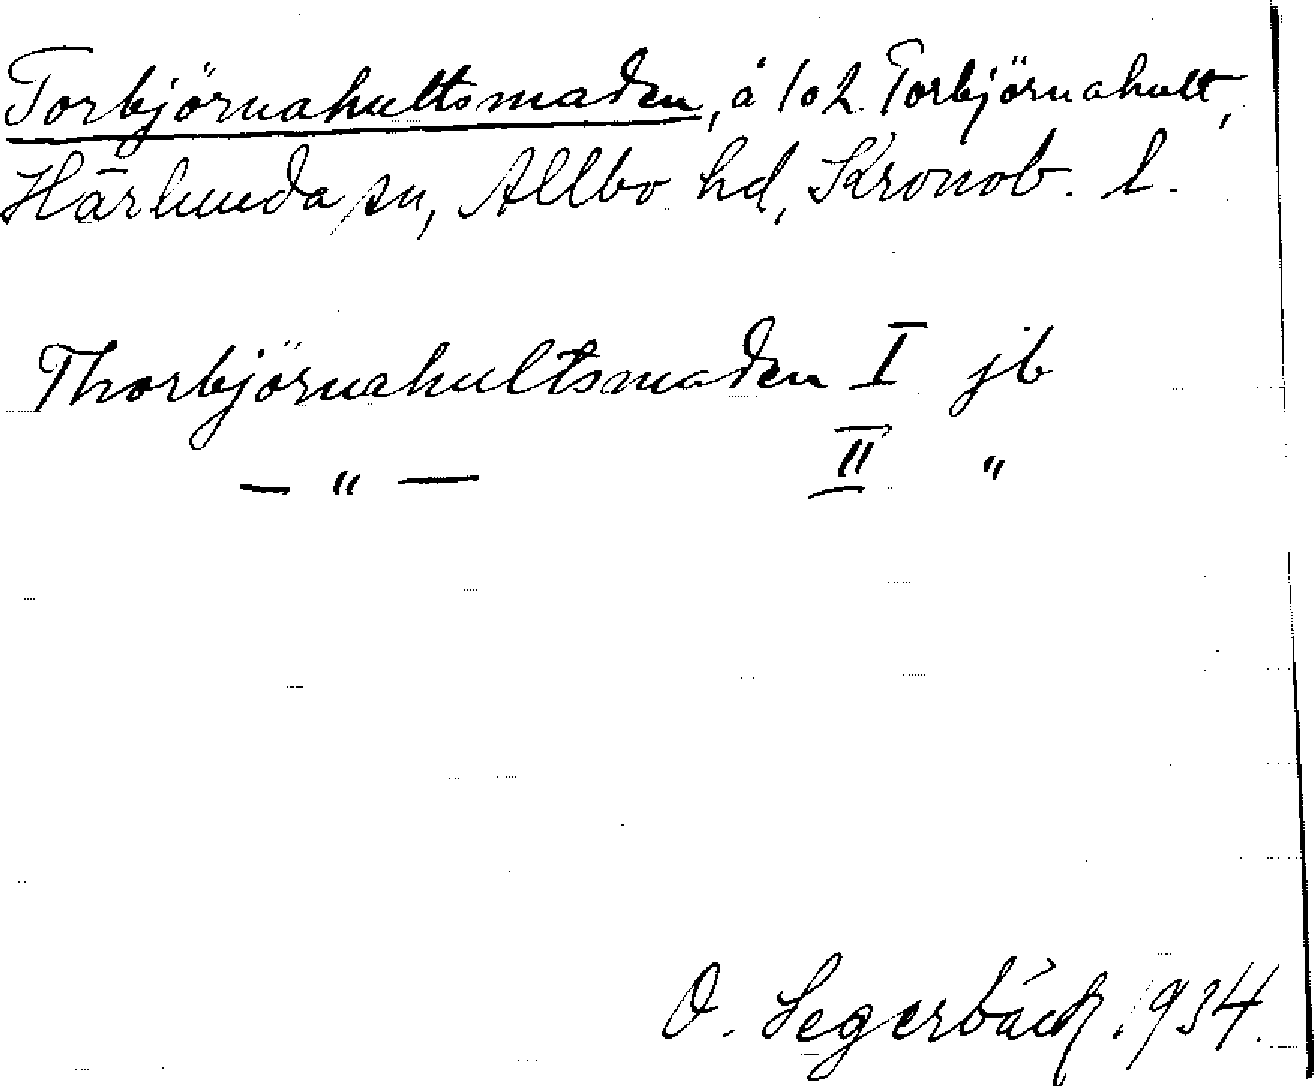 Torbjörnahultsmaden, å 1 o 2 Torbjörnahult,
Härlunda sn, Allbo hd, Kronob. l.
Thorbjörnahultsmaden I jb
— " — II "
O. Segerbäck. 1934.